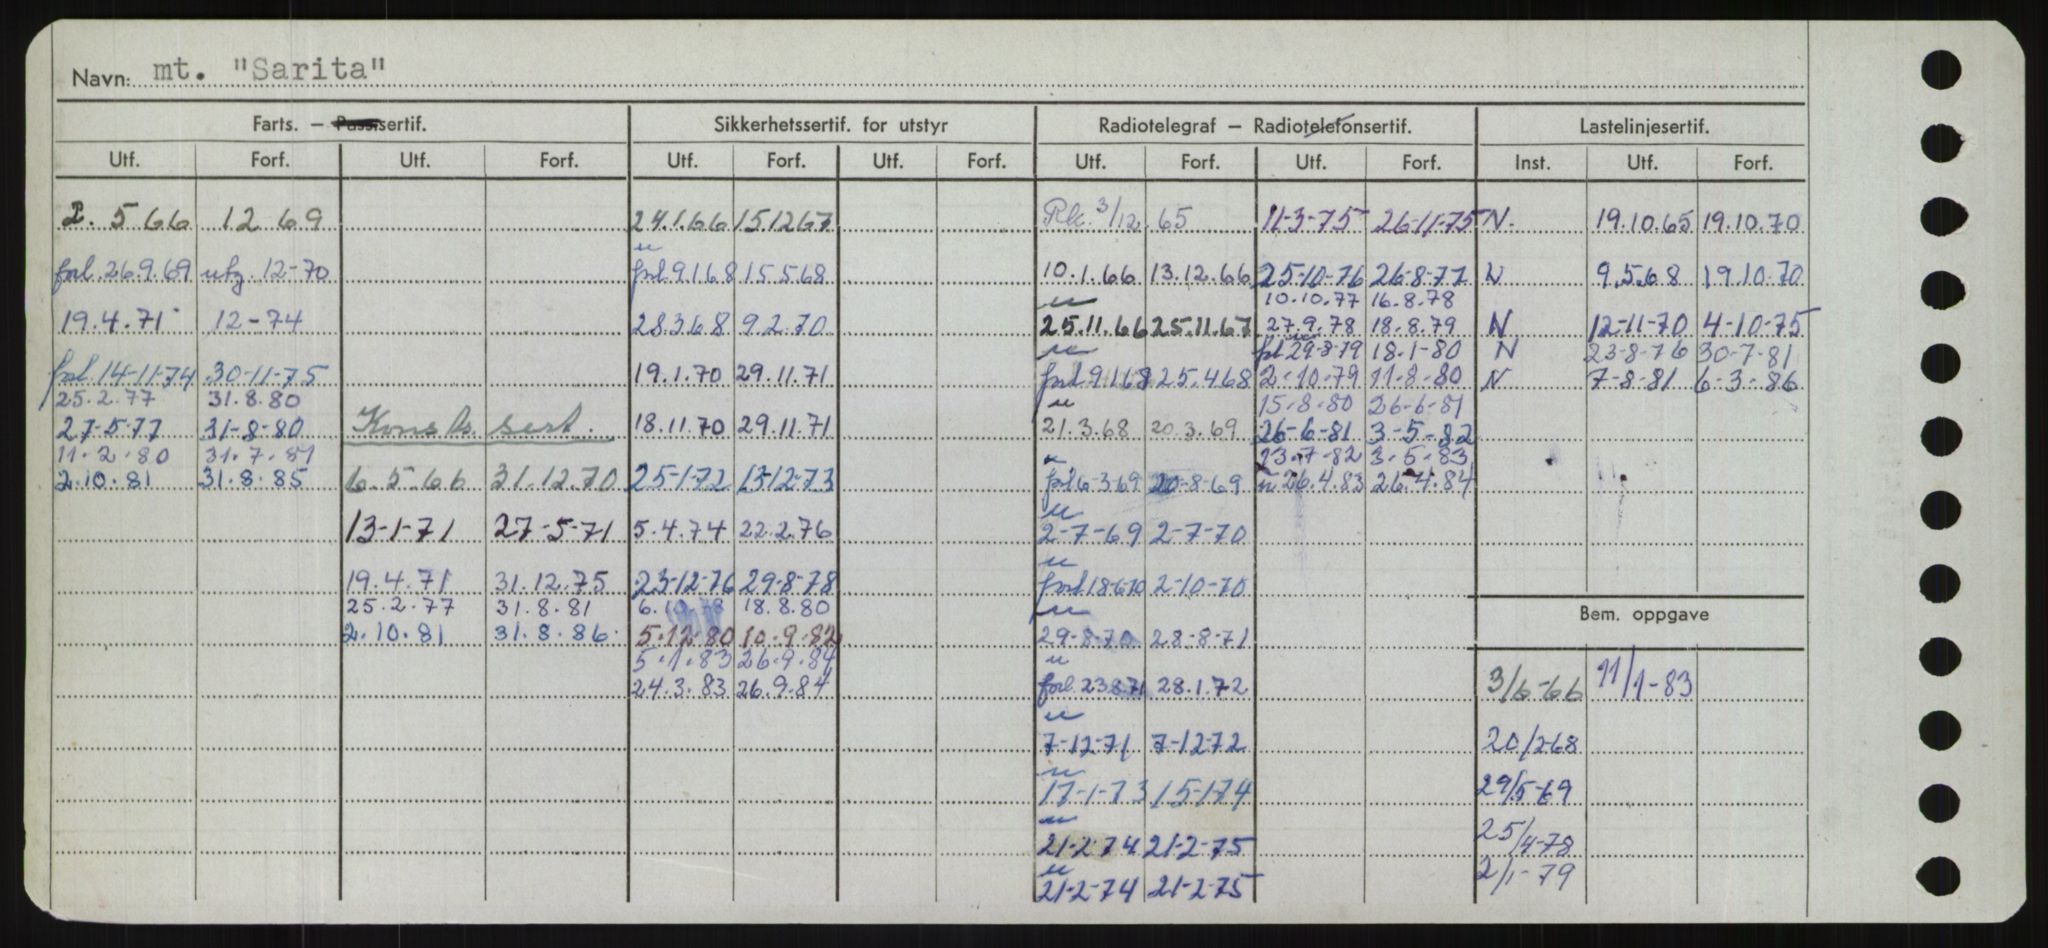 Navn: mt. "Sarita"
Farts. — Passisertif. Sikkerhetssertif. for utstyr Radiotelegraf — Radiotelefonsertif. Lastelinjesertif.
Utf. Forf. Utf. Forf. Utf. Forf. Utf. Forf. Utf. Forf. Utf. Forf. Inst. Utf. Forf.
2. 5 66 12 69
forl. 26.9.69 utg. 12-70
19.4.71 12-74
forl. 14-11-74 30-11-75
25.2.77 31.8.80
27-5-77 31-8-80
11.2.80 31.7.81
2.10.81 31.8.85
Konstr. sert.
6.5.66 31.12.70
13-1-71 27-5-71
19.4.71 31.12.75
25.2.77 31.8.81
2.10.81 31.8.86
24.1.66 15.12.67
u
forl 9.1.68 15.5.68
28.3.68 9.2.70
19.1.70 29.11.71
18.11.70 29.11.71
25-1-72 13-12-73
5.4.74 22.2.76
23-12-76 29-8-78
6.10.78 18.8.80
5.12.80 10.9.82
5.1.83 26.9.84
24.3.83 26.9.84
Rk. 3/12.65
10.1.66 13.12.66
u
25.11.66 25.11.67
u
forl 9.1.68 25.4.68
u
21.3.68 20.3.69
u
forl 6-3-69 20-8-69
u
2-7-69 2-7-70
u
forl 18-6-70 2-10-70
u
29-8-70 28-8-71
u
forl. 23.8.71 28.1.72
u
7-12-71 7-12-72
u
17-1-73 15-1-74
u
21-2-74 21-2-75
u
21-2-74 21-2-75
11-3-75 26-11-75
25-10-76 26-8-77
10.10.77 16.8.78
27.9.78 18.8.79
forl 29-8-79 18-1-80
2-10-79 11-8-80
15-8-80 26-6-81
26-6-81 3-5-82
13.7-82 3-5-83
u 26.4.83 26.4.84
N. 19.10.65 19.10.70
N 9.5.68 19.10.70
N 12-11-70 4-10-75
N 23-8-76 30-7-81
N 7-8-81 6-3-86
Bem. oppgave
3/6-66 11/1-83
20/2-68
29/5-69
25/4-78
2/1-79